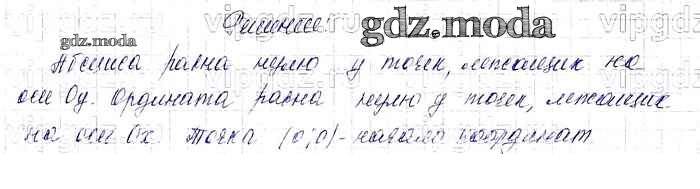 Решение:
gdz.moda
gdz.moda
Абсциса равна нулю у точек, лежащих на
оси Oy. Ордината равна нулю у точек, лежащих
на оси Ox. Точка (0;0)-начало координат